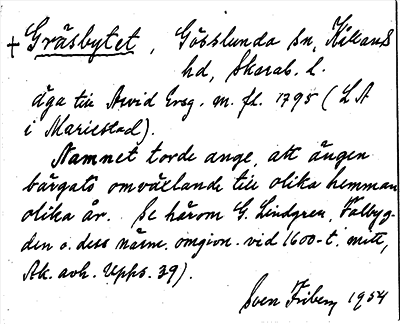 + Gräsbytet, Göteslunda sn, Kållands
hd, Skarab. l.
äga till Arvid Ersg. m. fl. 1795 (LA
i Mariestad).
Namnet torde ange, att ängen
bärgats omväxlande till olika hemman
olika år. Se härom G. Lindgren, Falbyg-
den o. dess närm. omgivn. vid 1600-t. mitt,
Ak. avh. Upps. 39).
Sven Friberg 1954